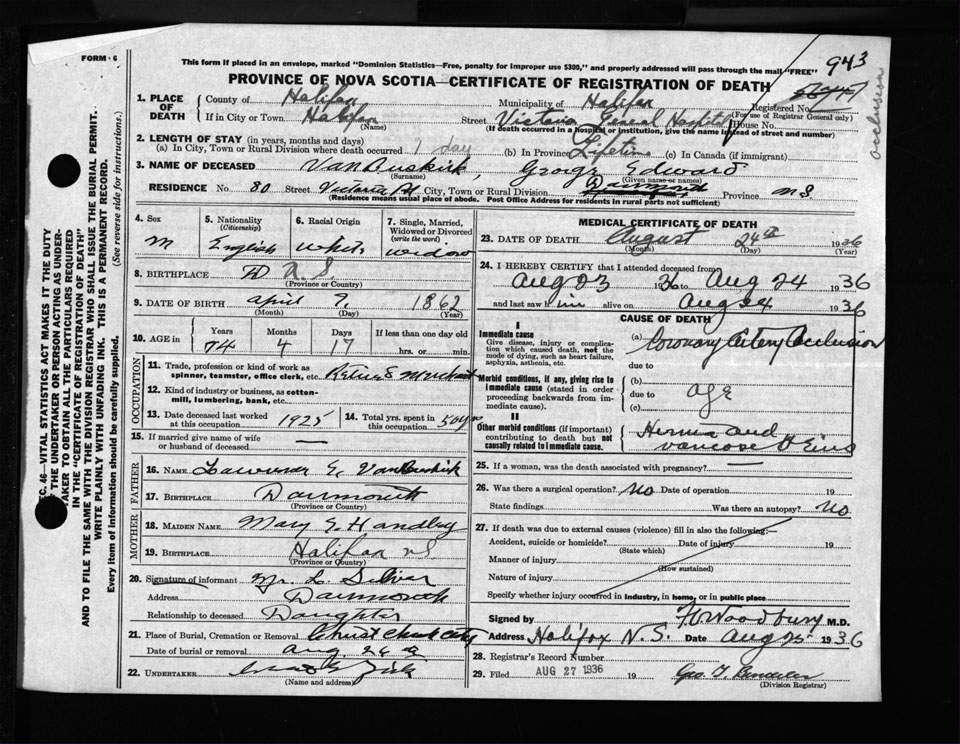 FORM - 6
This form if placed in an envelope, marked "Dominion Statistics—Free, penalty for improper use $300," and properly addressed will pass through the mail "FREE"
943
PROVINCE OF NOVA SCOTIA—CERTIFICATE OF REGISTRATION OF DEATH
occlusion
1. PLACE OF DEATH
County of Halifax Municipality of Halifax Registered No.
If in City or Town Halifax Street Victoria General Hospital House No. (For use of Registrar General only)
(Name) (If death occurred in a hospital or institution, give the name instead of street and number)
2. LENGTH OF STAY (in years, months and days)
(a) In City, Town or Rural Division where death occurred 1 day (b) In Province Lifetime (c) In Canada (if immigrant)
3. NAME OF DECEASED VanBuskirk, George Edward
(Surname) (Given name or names)
RESIDENCE No. 80 Street Victoria Rd City, Town or Rural Division Dartmouth Province N.S.
(Residence means usual place of abode. Post Office Address for residents in rural parts not sufficient)
4. Sex 5. Nationality (Citizenship) 6. Racial Origin 7. Single, Married, Widowed or Divorced (write the word)
M English White widow
8. BIRTHPLACE N S
(Province or Country)
9. DATE OF BIRTH April 7, 1862
(Month) (Day) (Year)
10. AGE in Years Months Days If less than one day old
74 4 17 hrs. or min.
OCCUPATION
11. Trade, profession or kind of work as spinner, teamster, office clerk, etc. Retired Merchant
12. Kind of industry or business, as cotton-mill, lumbering, bank, etc.
13. Date deceased last worked at this occupation 1925 14. Total yrs. spent in this occupation 50 yrs
15. If married give name of wife or husband of deceased —
FATHER
16. Name Lawrence E. VanBuskirk
17. BIRTHPLACE Dartmouth
(Province or Country)
MOTHER
18. MAIDEN NAME Mary E. Handley
19. BIRTHPLACE Halifax NS
(Province or Country)
20. Signature of informant L. Silver
Address Dartmouth
Relationship to deceased Daughter
21. Place of Burial, Cremation or Removal Christ Church Cemty
Date of burial or removal Aug 26
22. UNDERTAKER Zink
(Name and address)
MEDICAL CERTIFICATE OF DEATH
23. DATE OF DEATH August 24th 1936
(Month) (Day) (Year)
24. I HEREBY CERTIFY that I attended deceased from
Aug 23 1936 to Aug 24 1936
and last saw him alive on Aug 24 1936
CAUSE OF DEATH
I
Immediate cause
Give disease, injury or complication which caused death, not the mode of dying, such as heart failure, asphyxia, asthenia, etc.
(a) Coronary Artery Occlusion
due to
Morbid conditions, if any, giving rise to immediate cause (stated in order proceeding backwards from immediate cause).
(b)
due to age
(c)
II
Other morbid conditions (if important) contributing to death but not causally related to immediate cause.
Hernia and
varicose Veins
25. If a woman, was the death associated with pregnancy? —
26. Was there a surgical operation? No Date of operation 19
State findings Was there an autopsy? No
27. If death was due to external causes (violence) fill in also the following:—
Accident, suicide or homicide? Date of injury 19
(State which)
Manner of injury
(How sustained)
Nature of injury
Specify whether injury occurred in industry, in home, or in public place
Signed by Woodbury M.D.
Address Halifax N.S. Date Aug 25 1936
28. Registrar's Record Number
29. Filed AUG 27 1936 19
(Division Registrar)
SEC. 46—VITAL STATISTICS ACT MAKES IT THE DUTY
OF THE UNDERTAKER OR PERSON ACTING AS UNDER-
TAKER TO OBTAIN ALL THE PARTICULARS REQUIRED
IN THE "CERTIFICATE OF REGISTRATION OF DEATH"
AND TO FILE THE SAME WITH THE DIVISION REGISTRAR WHO SHALL ISSUE THE BURIAL PERMIT.
WRITE PLAINLY WITH UNFADING INK. THIS IS A PERMANENT RECORD.
Every item of information should be carefully supplied. (See reverse side for instructions.)